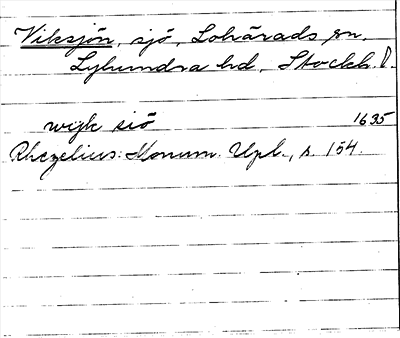 Viksjön, sjö, Lohärads sn.
Lyhundra hd, Stockh. l.
wijk siö 1635
Rhezelius: Monum. Upl., s. 154.